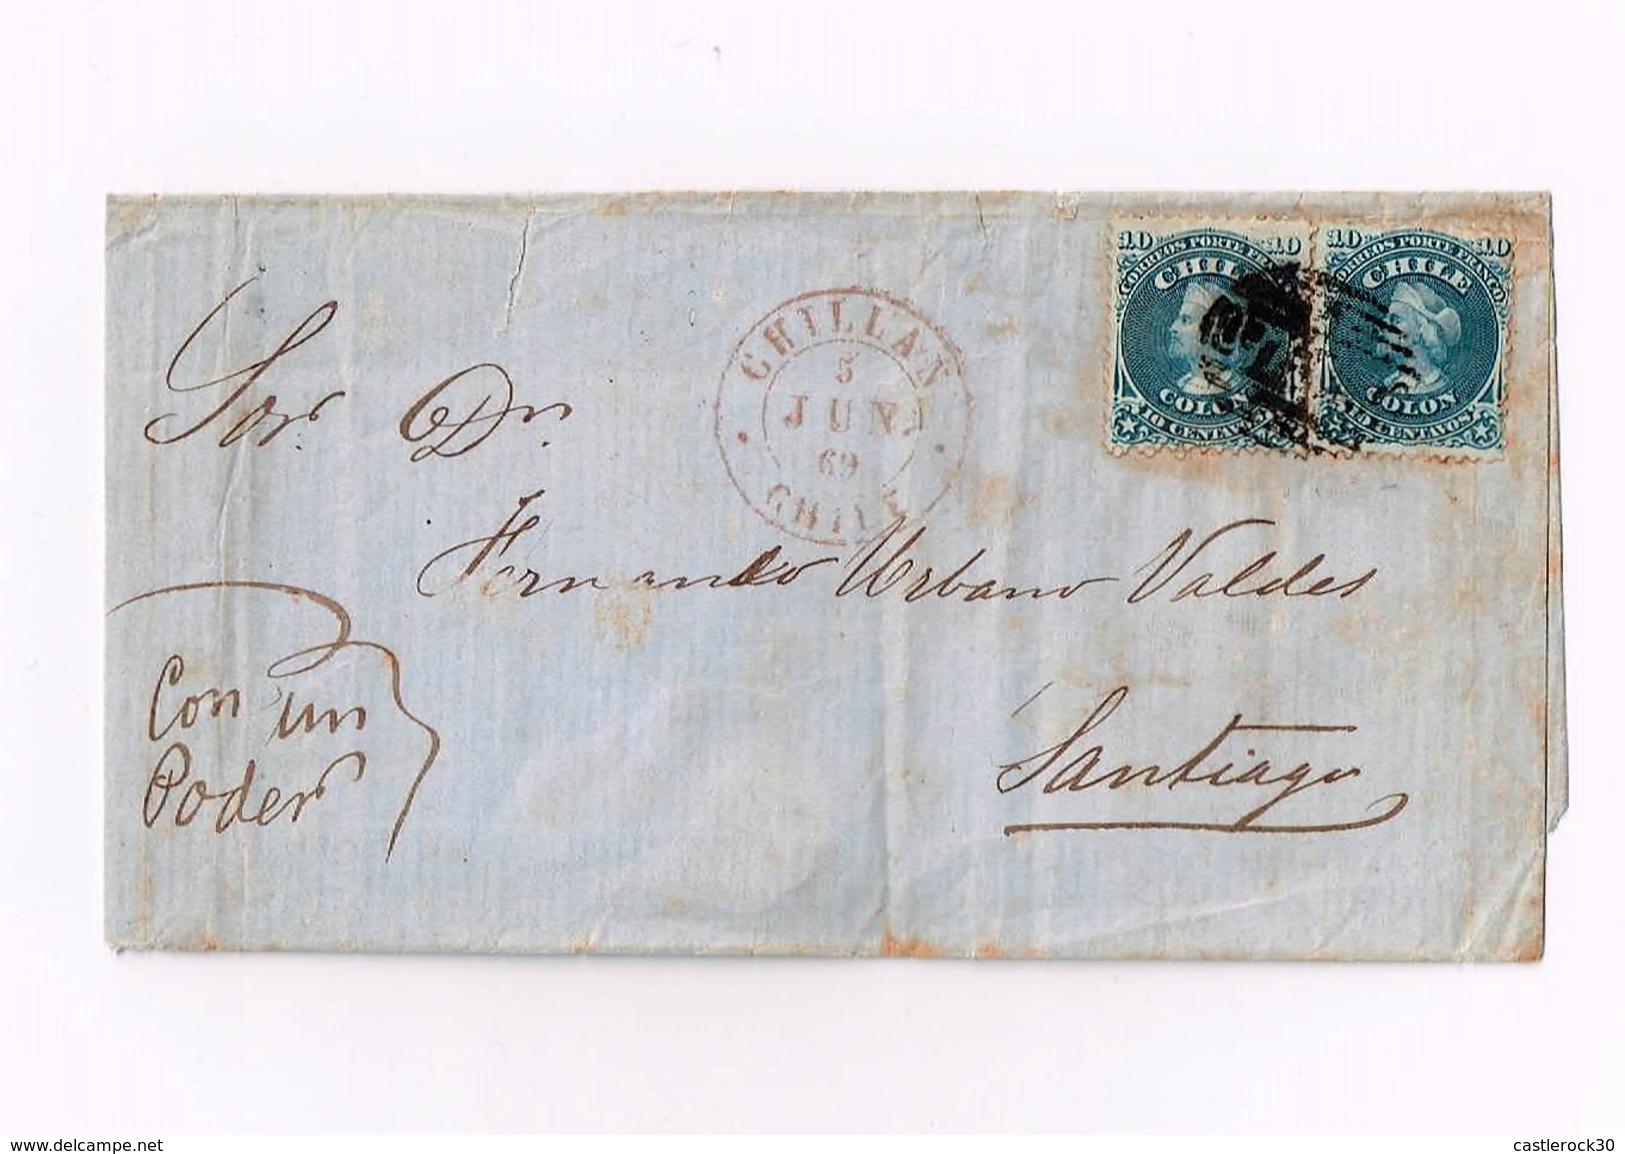 Sor. Dn.
Fernando Urbano Valdes
Santiago
Con un
Poder
CHILLAN
5
JUN.
69
CHILE
10 10
CORREOS PORTE FRANCO
CHILE
COLON
10 CENTAVOS
10 10
CORREOS PORTE FRANCO
CHILE
COLON
10 CENTAVOS
www.delcampe.net
castlerock30